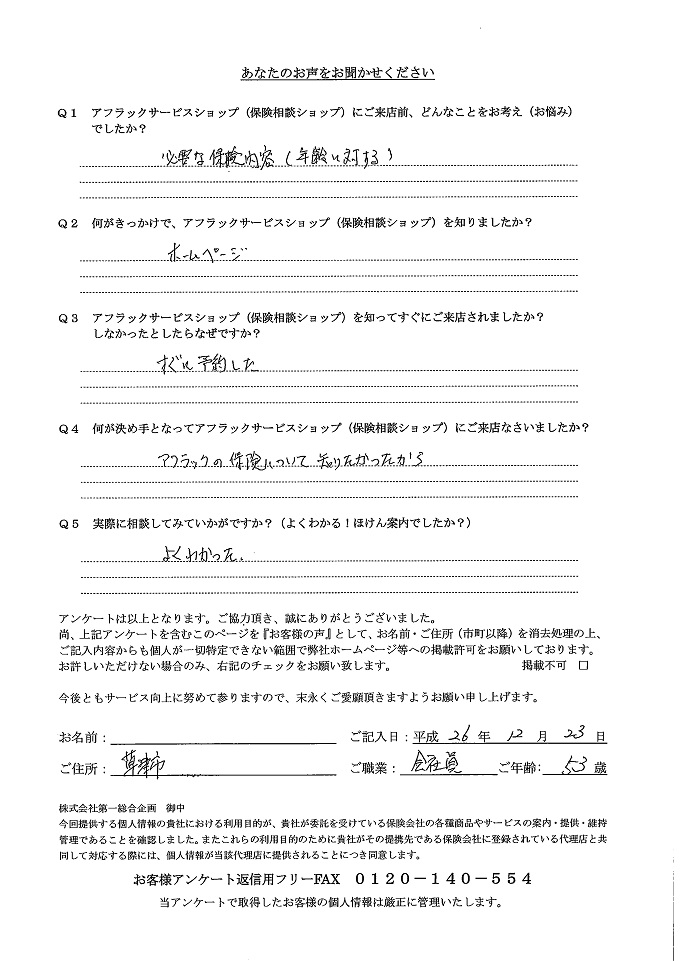 あなたのお声をお聞かせください
Q1 アフラックサービスショップ（保険相談ショップ）にご来店前、どんなことをお考え（お悩み）
でしたか？
必要な保険内容（年齢に対する）
Q2 何がきっかけで、アフラックサービスショップ（保険相談ショップ）を知りましたか？
ホームページ
Q3 アフラックサービスショップ（保険相談ショップ）を知ってすぐにご来店されましたか？
しなかったとしたらなぜですか？
すぐに予約した
Q4 何が決め手となってアフラックサービスショップ（保険相談ショップ）にご来店なさいましたか？
アフラックの保険について知りたかったから
Q5 実際に相談してみていかがですか？（よくわかる！ほけん案内でしたか？）
よくわかった。
アンケートは以上となります。ご協力頂き、誠にありがとうございました。
尚、上記アンケートを含むこのページを『お客様の声』として、お名前・ご住所（市町以降）を消去処理の上、
ご記入内容からも個人が一切特定できない範囲で弊社ホームページ等への掲載許可をお願いしております。
お許しいただけない場合のみ、右記のチェックをお願い致します。 掲載不可 □
今後ともサービス向上に努めて参りますので、末永くご愛顧頂きますようお願い申し上げます。
お名前： ご記入日：平成 26 年 12 月 23 日
ご住所： 草津市 ご職業： 会社員 ご年齢： 53 歳
株式会社第一総合企画 御中
今回提供する個人情報の貴社における利用目的が、貴社が委託を受けている保険会社の各種商品やサービスの案内・提供・維持
管理であることを確認しました。またこれらの利用目的のために貴社がその提携先である保険会社に登録されている代理店と共
同して対応する際には、個人情報が当該代理店に提供されることにつき同意します。
お客様アンケート返信用フリーFAX 0120－140－554
当アンケートで取得したお客様の個人情報は厳正に管理いたします。